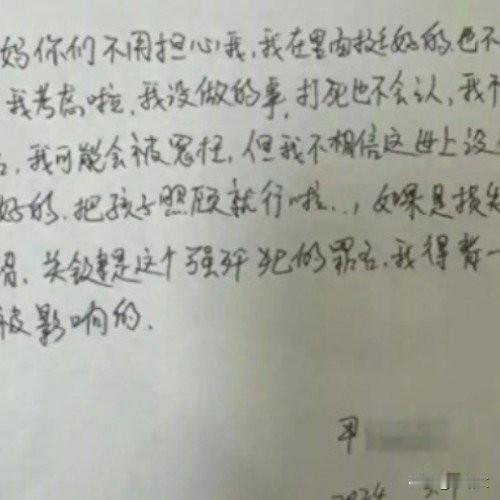 妈你们不用担心我,我在里面挺好的,也不
我考虑啦,我没做的事,打死也不会认,我
,我可能会被冤枉,但我不相信这世上没
好的.把孩子照顾就行啦...,如果是损失
关键是这个强奸犯的罪名.我得背一
被影响的.
2024